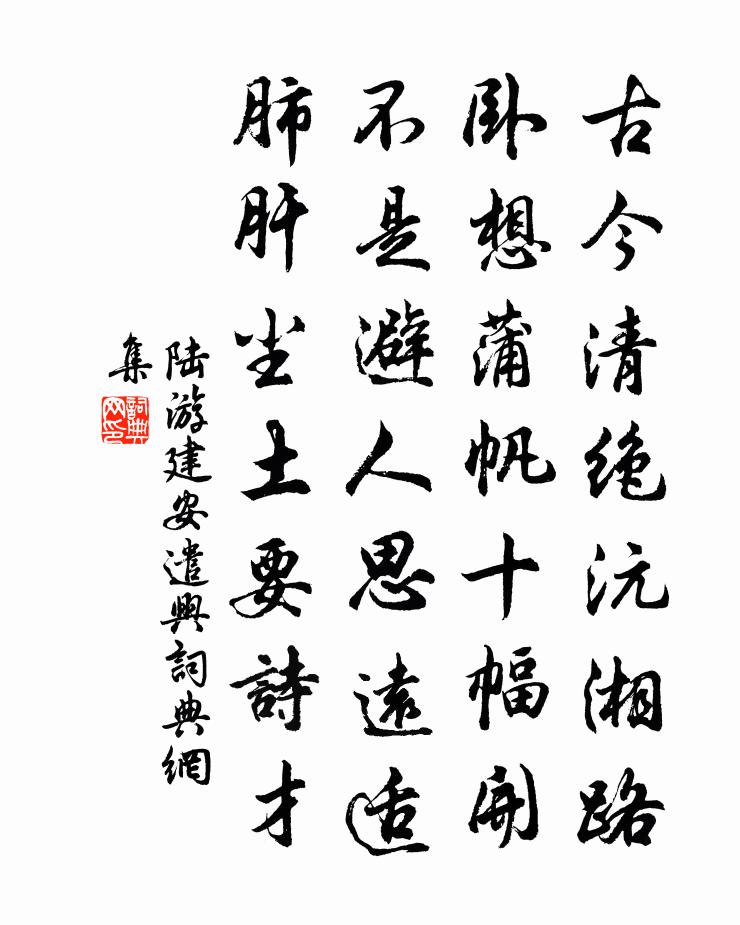 古今清绝沅湘路
卧想蒲帆十幅開
不是避人思遠适
肺肝尘土要詩才
陆游建安遣興詞典網
集
詞典
网印